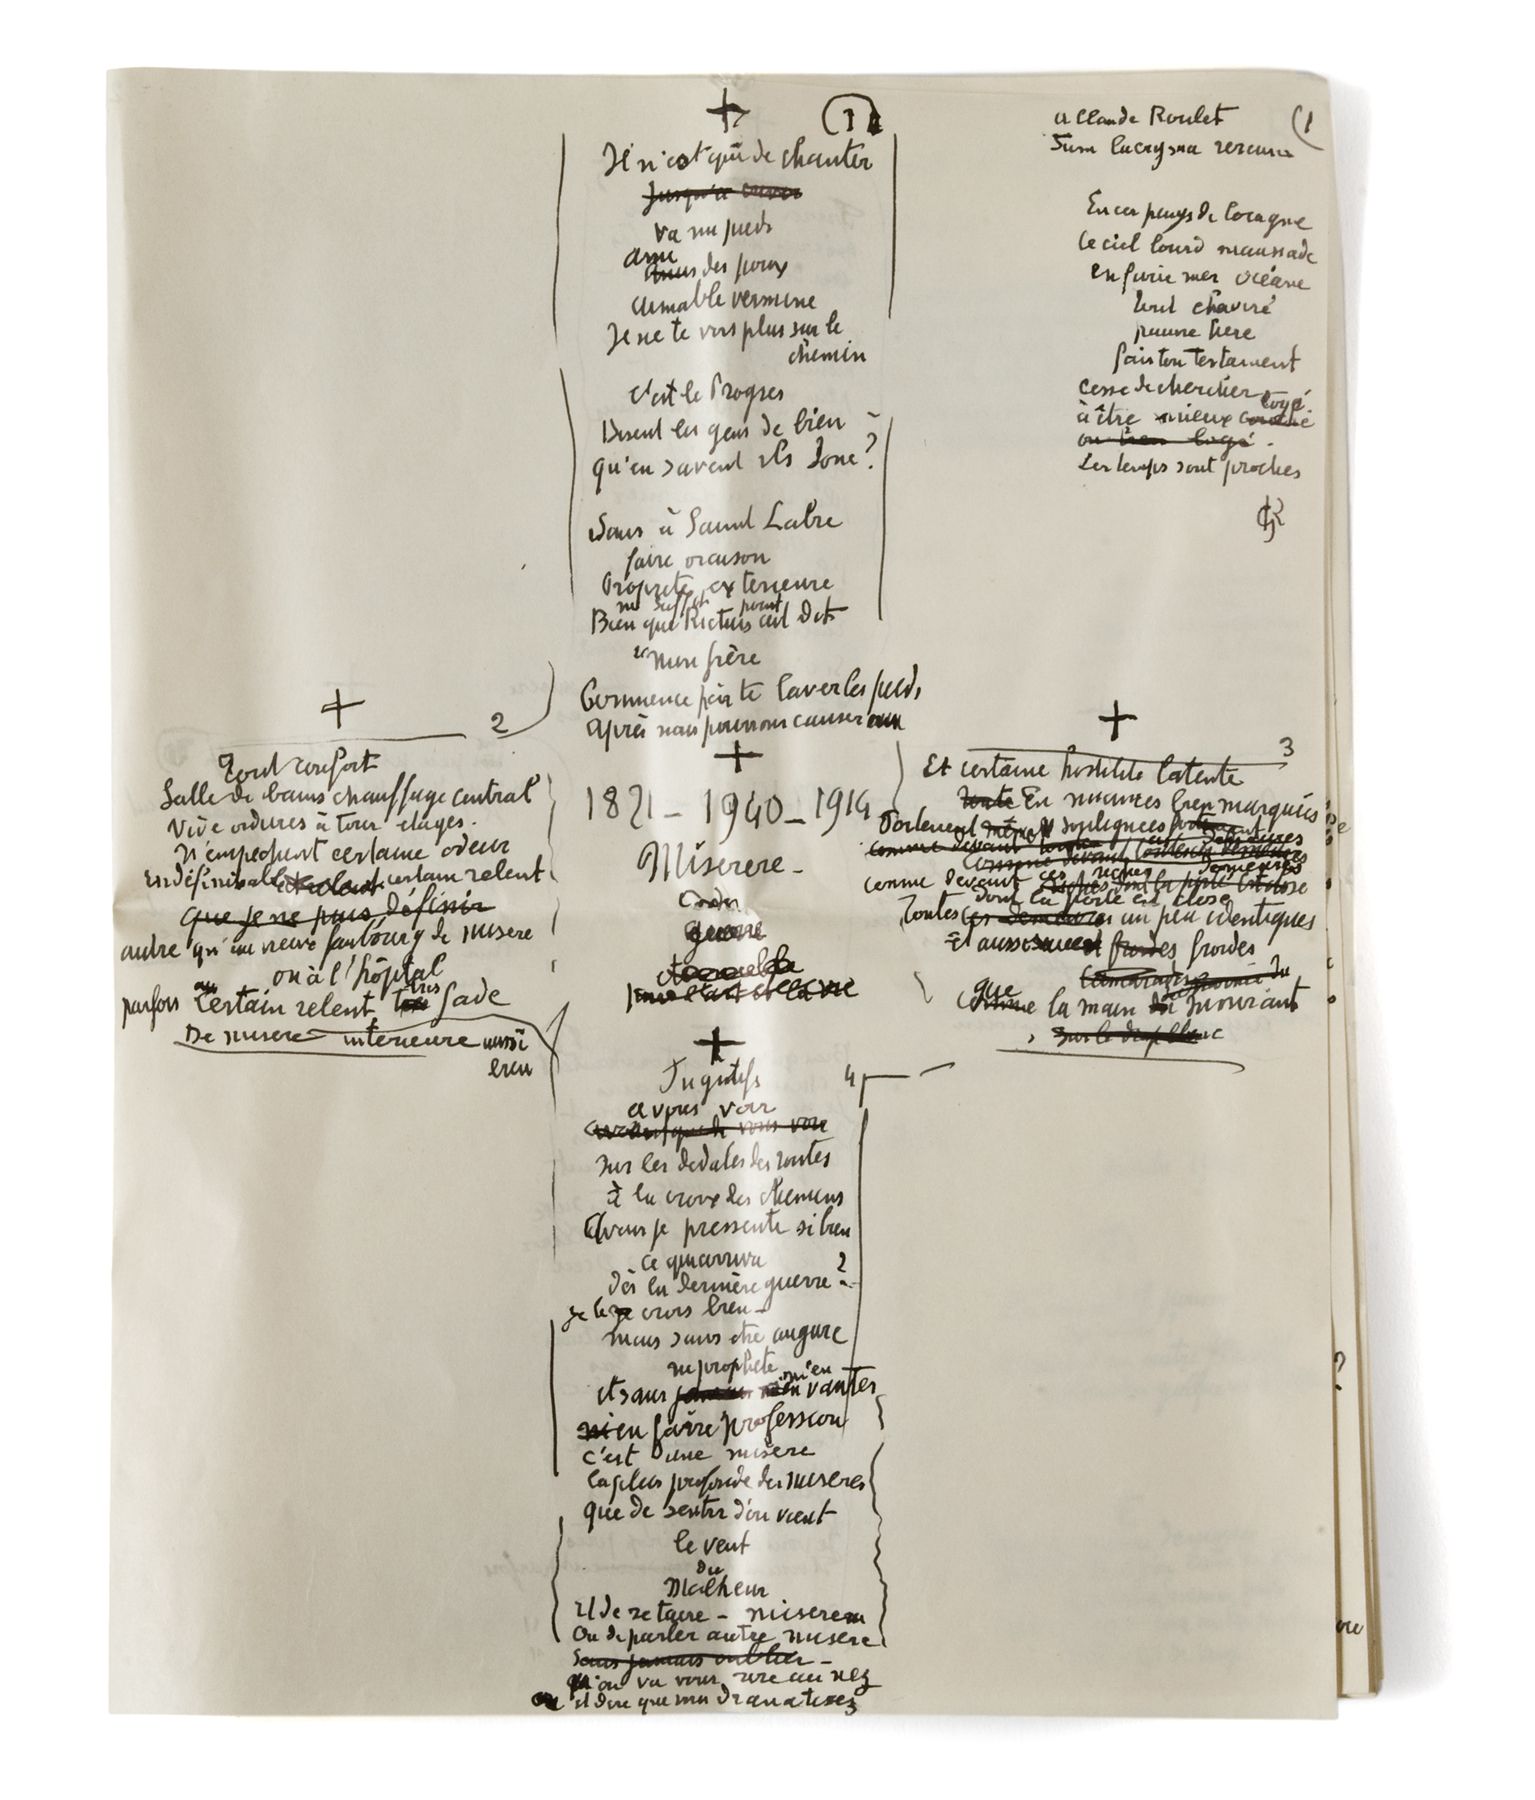 1
Il n'est que de chanter
Jusqu'à
Va nu pieds
ami
des poux
aimable vermine
Je ne te vois plus sur le
chemin
C'est le Progrès
Disent les gens de bien
qu'en savent ils donc ?
à Saint Labre
faire oraison
Propreté extérieure
ne suffit point
Bien que Rictus ait dit
"Mon frère
Commence par te laver les pieds
après nous pourrons causer
(1
a Claude Roulet
Sunt lacryma rerum
En ces pays de Cocagne
Le ciel lourd maussade
en furie mer océane
tout chaviré
pauvre hère
fais ton testament
cesse de chercher
logé
à être mieux couché
ou bien logé.
Les temps sont proches
GR
2
Tout confort
Salle de bains chauffage central
Vide ordures à tous étages.
N'empêchent certaine odeur
Indéfinissable certain relent
que je ne puis définir
autre qu'un neuve faubourg de misère
ou à l'hôpital
parfois certain relent très fade
De misère intérieure aussi
bien
1871 - 1940 - 1914
Miserere -
guerre
3
Et certaine hostilité latente
toute En nuances bien marquées
comme devant ces riches demeures
dont la porte est close
Toutes un peu identiques
Et aussi froides
que
comme la main du mourant
sur le drap blanc
4
Fugitifs
à vous voir
vous voir
sur les dédales des routes
à la croix des chemins
Avais je pressenti si bien
ce qui arriva
dès la dernière guerre ?
je le crois bien -
mais sans être augure
ni prophète
m'en
et sans vanter
ni en faire profession
c'est une misère
la plus profonde des misères
que de sentir d'où vient
le vent
du
Malheur
Et de se taire - misère
Ou de parler autre misère
Sans jamais oublier -
qu'on va vous rire au nez
et dire que vous dramatisez